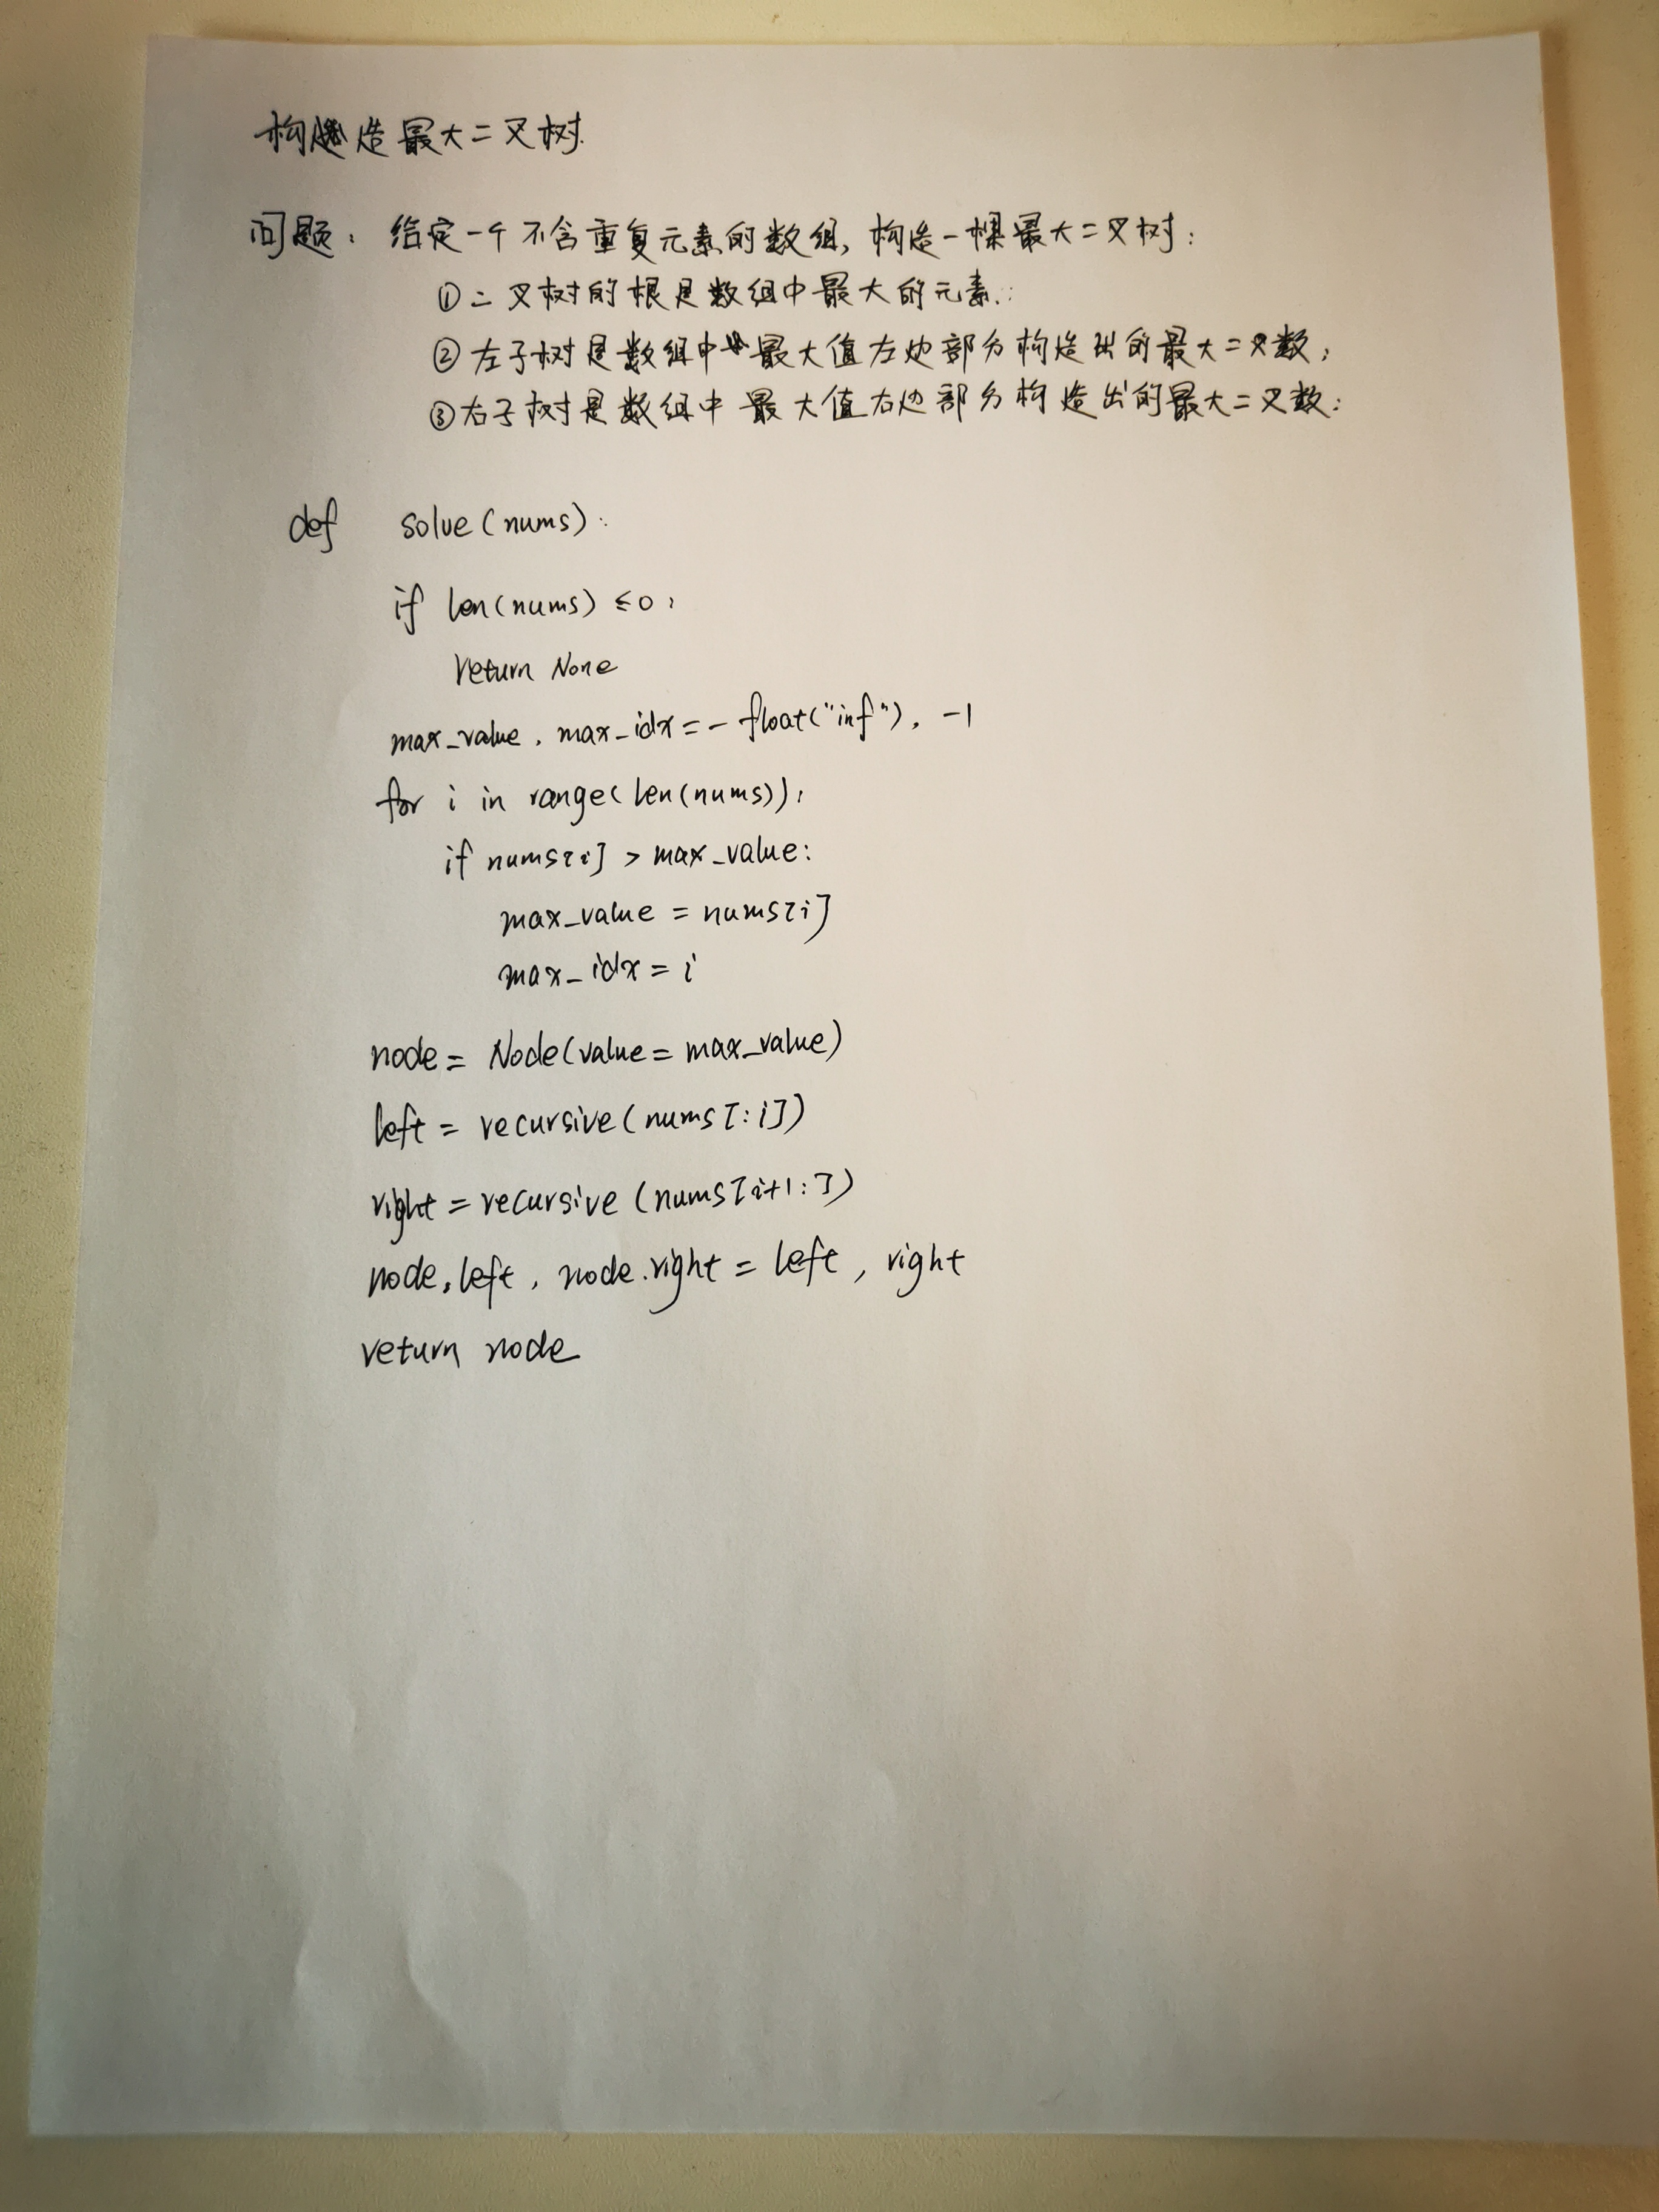 构造最大二叉树.
问题: 给定一个不含重复元素的数组, 构造一棵最大二叉树:
①二叉树的根是数组中最大的元素;
②左子树是数组中最大值左边部分构造出的最大二叉数;
③右子树是数组中最大值右边部分构造出的最大二叉数;
def solve(nums):
if len(nums) ≤0:
return None
max_value, max_idx = -float("inf"), -1
for i in range(len(nums)):
if nums[i] > max_value:
max_value = nums[i]
max_idx = i
node = Node(value = max_value)
left = recursive(nums[:i])
right = recursive(nums[i+1:])
node.left, node.right = left, right
return node